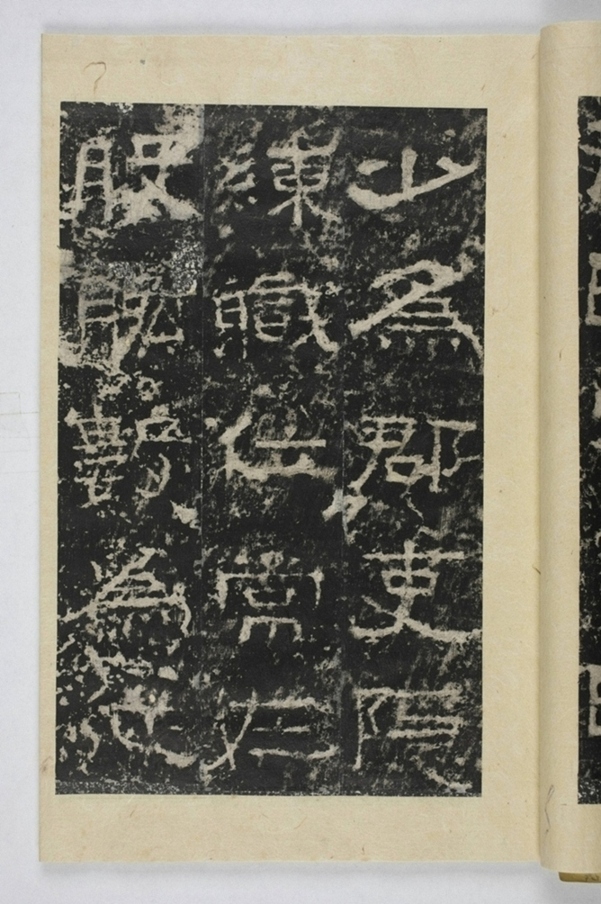 少爲郡吏隱
練職位常在
股肱數為從